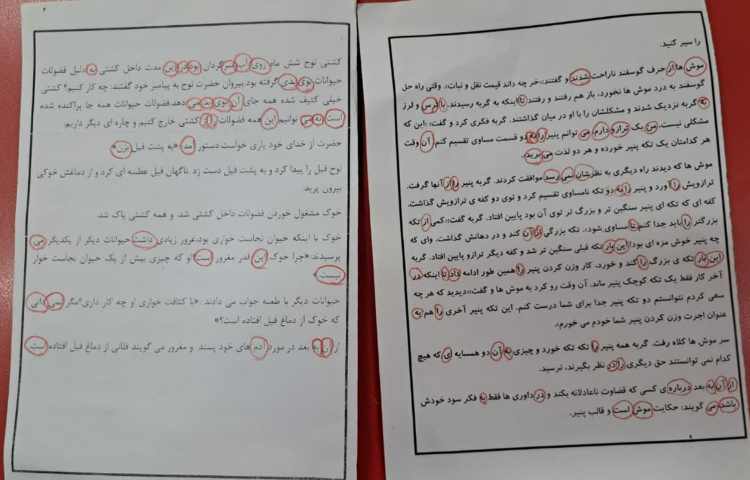 را سیر کنید.
موش ها از حرف گوسفند ناراحت شدند و گفتند:«خر چه داند قیمت نقل و نبات». وقتی راه حل
گوسفند به درد موش ها نخورد، باز هم رفتند و رفتند تا اینکه به گربه رسیدند. با ترس و لرز
به گربه نزدیک شدند و مشکلشان را با او در میان گذاشتند. گربه فکری کرد و گفت:«این که
مشکلی نیست. من یک ترازو دارم. می توانم پنیر را به دو قسمت مساوی تقسیم کنم. آن وقت
هر کدامتان یک تکه پنیر خورده و هر دو لذت می برید.»
موش ها که دیدند راه دیگری به نظرشان نمی رسد موافقت کردند. گربه پنیر را از آنها گرفت.
ترازویش را آورد و پنیر را به دو تکه نامساوی تقسیم کرد و توی دو کفه ی ترازویش گذاشت.
کفه ای که تکه ای پنیر سنگین تر و بزرگ تر توی آن بود پایین افتاد. گربه گفت:«کمی از تکه
بزرگتر را باید جدا کنم تا مساوی شود». تکه بزرگی از آن کند و در دهانش گذاشت. وای که
چه پنیر خوش مزه ای بود! این بار تکه قبلی سنگین تر شد و کفه دیگر ترازو پایین افتاد. گربه
این بار تکه ی بزرگ را کند و خورد. کار وزن کردن پنیر را همین طور ادامه داد تا اینکه در
آخر کار فقط یک تکه کوچک پنیر ماند. آن وقت رو کرد به موش ها و گفت:«دیدید که هر چه
سعی کردم نتوانستم دو تکه پنیر جدا برای شما درست کنم. این تکه پنیر آخری را هم به
عنوان اجرت وزن کردن پنیر شما خودم می خورم.»
سر موش ها کلاه رفت. گربه همه پنیر را تکه تکه خورد و چیزی به آن دو همسایه ی که هیچ
کدام نمی توانستند حق دیگری را در نظر بگیرند، نرسید.
از آن به بعد درباره ی کسی که قضاوت ناعادلانه بکند و در داوری ها فقط به فکر سود خودش
باشد می گویند: حکایت موش است و قالب پنیر.
کشتی نوح شش ماه روی آب سرگردان بود. در این مدت داخل کشتی به دلیل فضولات
حیوانات بوی بدی گرفته بود. پیروان حضرت نوح به پیامبر خود گفتند: چه کار کنیم؟ کشتی
خیلی کثیف شده همه جای آن بوی بد می دهد. فضولات حیوانات همه جا پراکنده شده
است. نمی توانیم این همه فضولات را از کشتی خارج کنیم و چاره ای دیگر داریم.
حضرت از خدای خود یاری خواست. دستور آمد: «به پشت فیل بزن.»
نوح فیل را پیدا کرد و به پشت فیل دست زد ناگهان فیل عطسه ای کرد و از دماغش خوکی
بیرون پرید.
خوک مشغول خوردن فضولات داخل کشتی شد. و همه کشتی پاک شد.
خوک با اینکه حیوان نجاست خواری بود، غرور زیادی داشت. حیوانات دیگر از یکدیگر می
پرسیدند:«چرا خوک این قدر مغرور است؟ او که چیزی بیش از یک حیوان نجاست خوار
نیست.»
حیوانات دیگر با طعنه جواب می دادند :«با کثافت خواری او چه کار داری؟ مگر نمی دانی
که خوک از دماغ فیل افتاده است؟»
از آن به بعد در مورد آدم های خود پسند و مغرور می گویند فلانی از دماغ فیل افتاده است.